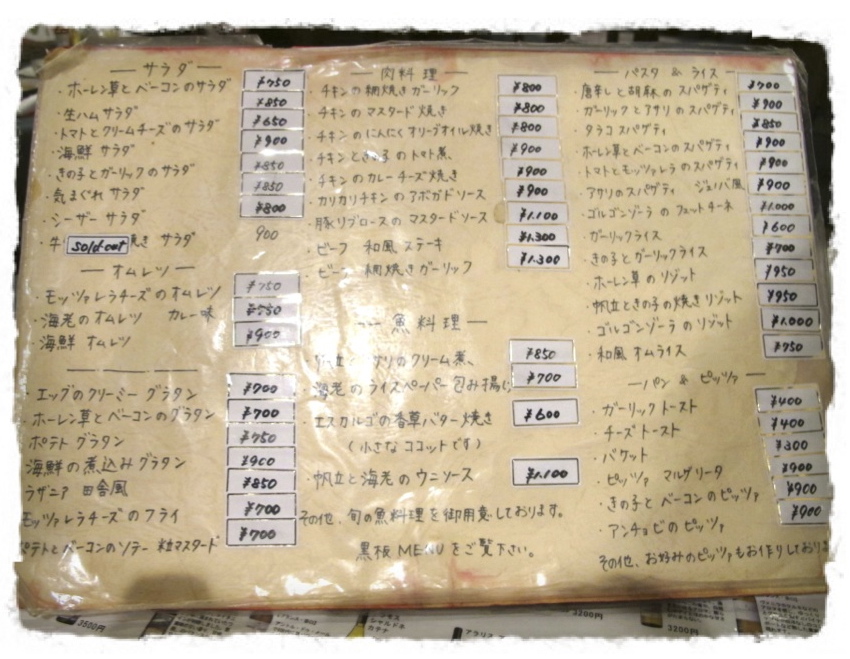 ー サラダ ー
・ホーレン草とベーコンのサラダ ¥750
・生ハムサラダ ¥850
・トマトとクリームチーズのサラダ ¥650
・海鮮サラダ ¥900
・きの子とガーリックのサラダ ¥850
・気まぐれサラダ ¥850
・シーザーサラダ ¥800
・牛 sold out 焼き サラダ 900
ー オムレツ ー
・モッツァレラチーズのオムレツ ¥750
・海老のオムレツ カレー味 ¥750
・海鮮オムレツ ¥900
・エッグのクリーミーグラタン ¥700
・ホーレン草とベーコンのグラタン ¥700
ポテトグラタン ¥750
海鮮の煮込みグラタン ¥900
ラザニア 田舎風 ¥850
モッツァレラチーズのフライ ¥700
ポテトとベーコンのソテー 粒マスタード ¥700
ー 肉料理 ー
・チキンの網焼きガーリック ¥800
・チキンのマスタード焼き ¥800
・チキンのにんにくオリーブオイル焼き ¥800
・チキンときの子のトマト煮、 ¥900
・チキンのカレーチーズ焼き ¥900
・カリカリチキンのアボガドソース ¥900
・豚リブロースのマスタードソース ¥1.100
・ビーフ 和風ステーキ ¥1.300
・ビーフ 網焼きガーリック ¥1.300
ー 魚料理 ー
のクリーム煮、 ¥850
海老のライスペーパー包み揚げ ¥700
・エスカルゴの香草バター焼き ¥600
(小さなココットです)
・帆立と海老のウニソース ¥1.100
その他、旬の魚料理を御用意しております。
黒板MENUをご覧下さい。
ー パスタ & ライス ー
・唐辛しと胡麻のスパゲティ ¥700
・ガーリックとアサリのスパゲティ ¥900
・タラコスパゲティ ¥850
・ホーレン草とベーコンのスパゲティ ¥900
・トマトとモッツァレラのスパゲティ ¥900
・アサリのスパゲティ ジェノバ風 ¥900
・ゴルゴンゾーラのフェットチーネ ¥1.000
・ガーリックライス ¥600
・きの子とガーリックライス ¥700
・ホーレン草のリゾット ¥950
・帆立ときの子の焼きリゾット ¥950
・ゴルゴンゾーラのリゾット ¥1.000
・和風オムライス ¥750
ー パン & ピッツァ ー
・ガーリックトースト ¥400
・チーズトースト ¥400
・バケット ¥300
・ピッツァ マルゲリータ ¥900
・きの子とベーコンのピッツァ ¥900
・アンチョビのピッツァ ¥900
その他、お好みのピッツァもお作りしており
3500円
シャルドネ
カテナ
3200円
3200円